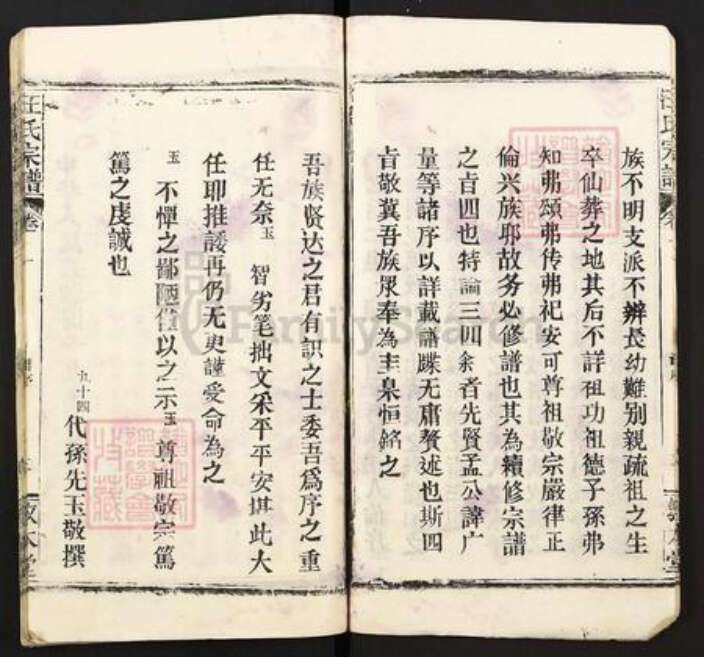 汪氏宗譜
卷
族不明支派不辨長幼難别親疏祖之生
卒仙葬之地其后不詳祖功祖德子孫弗
知弗頌弗传弗祀安可尊祖敬宗嚴律正
倫兴族耶故务必修譜也其為續修宗譜
之旨四也特論三四余者先賢孟公諱广
量等諸序以詳載譜牒无庸赘述也斯四
旨敬冀吾族眾奉為圭臬恒銘之
吾族贤达之君有識之士委吾為序之重
任无奈玉智劣笔拙文采平平安堪此大
任耶推諉再仍无更謹受命為之
玉不憚之鄙陋僅以之示玉尊祖敬宗篤
篤之虔誠也
九十四代孫先玉敬撰
汪氏宗譜
卷一
譜序
敦本堂
FamilySearch